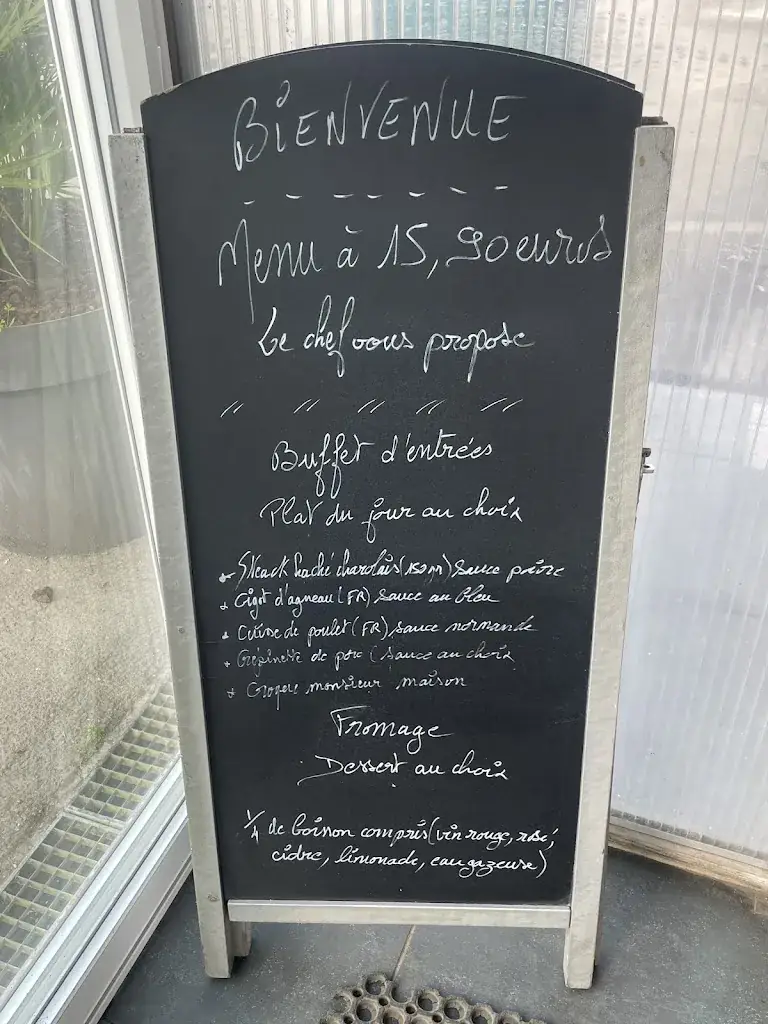 BIENVENUE
Menu à 15,90 euros
Le chef vous propose
Buffet d'entrées
Plat du jour au choix
Steack haché charolais (150gr) sauce poivre
Gigot d'agneau (FR) sauce au bleu
Cuisse de poulet (FR) sauce normande
Crépinette de porc (sauce au choix
Croque monsieur maison
Fromage
Dessert au choix
1/4 de boisson compris (vin rouge, rosé,
cidre, limonade, eau gazeuse)